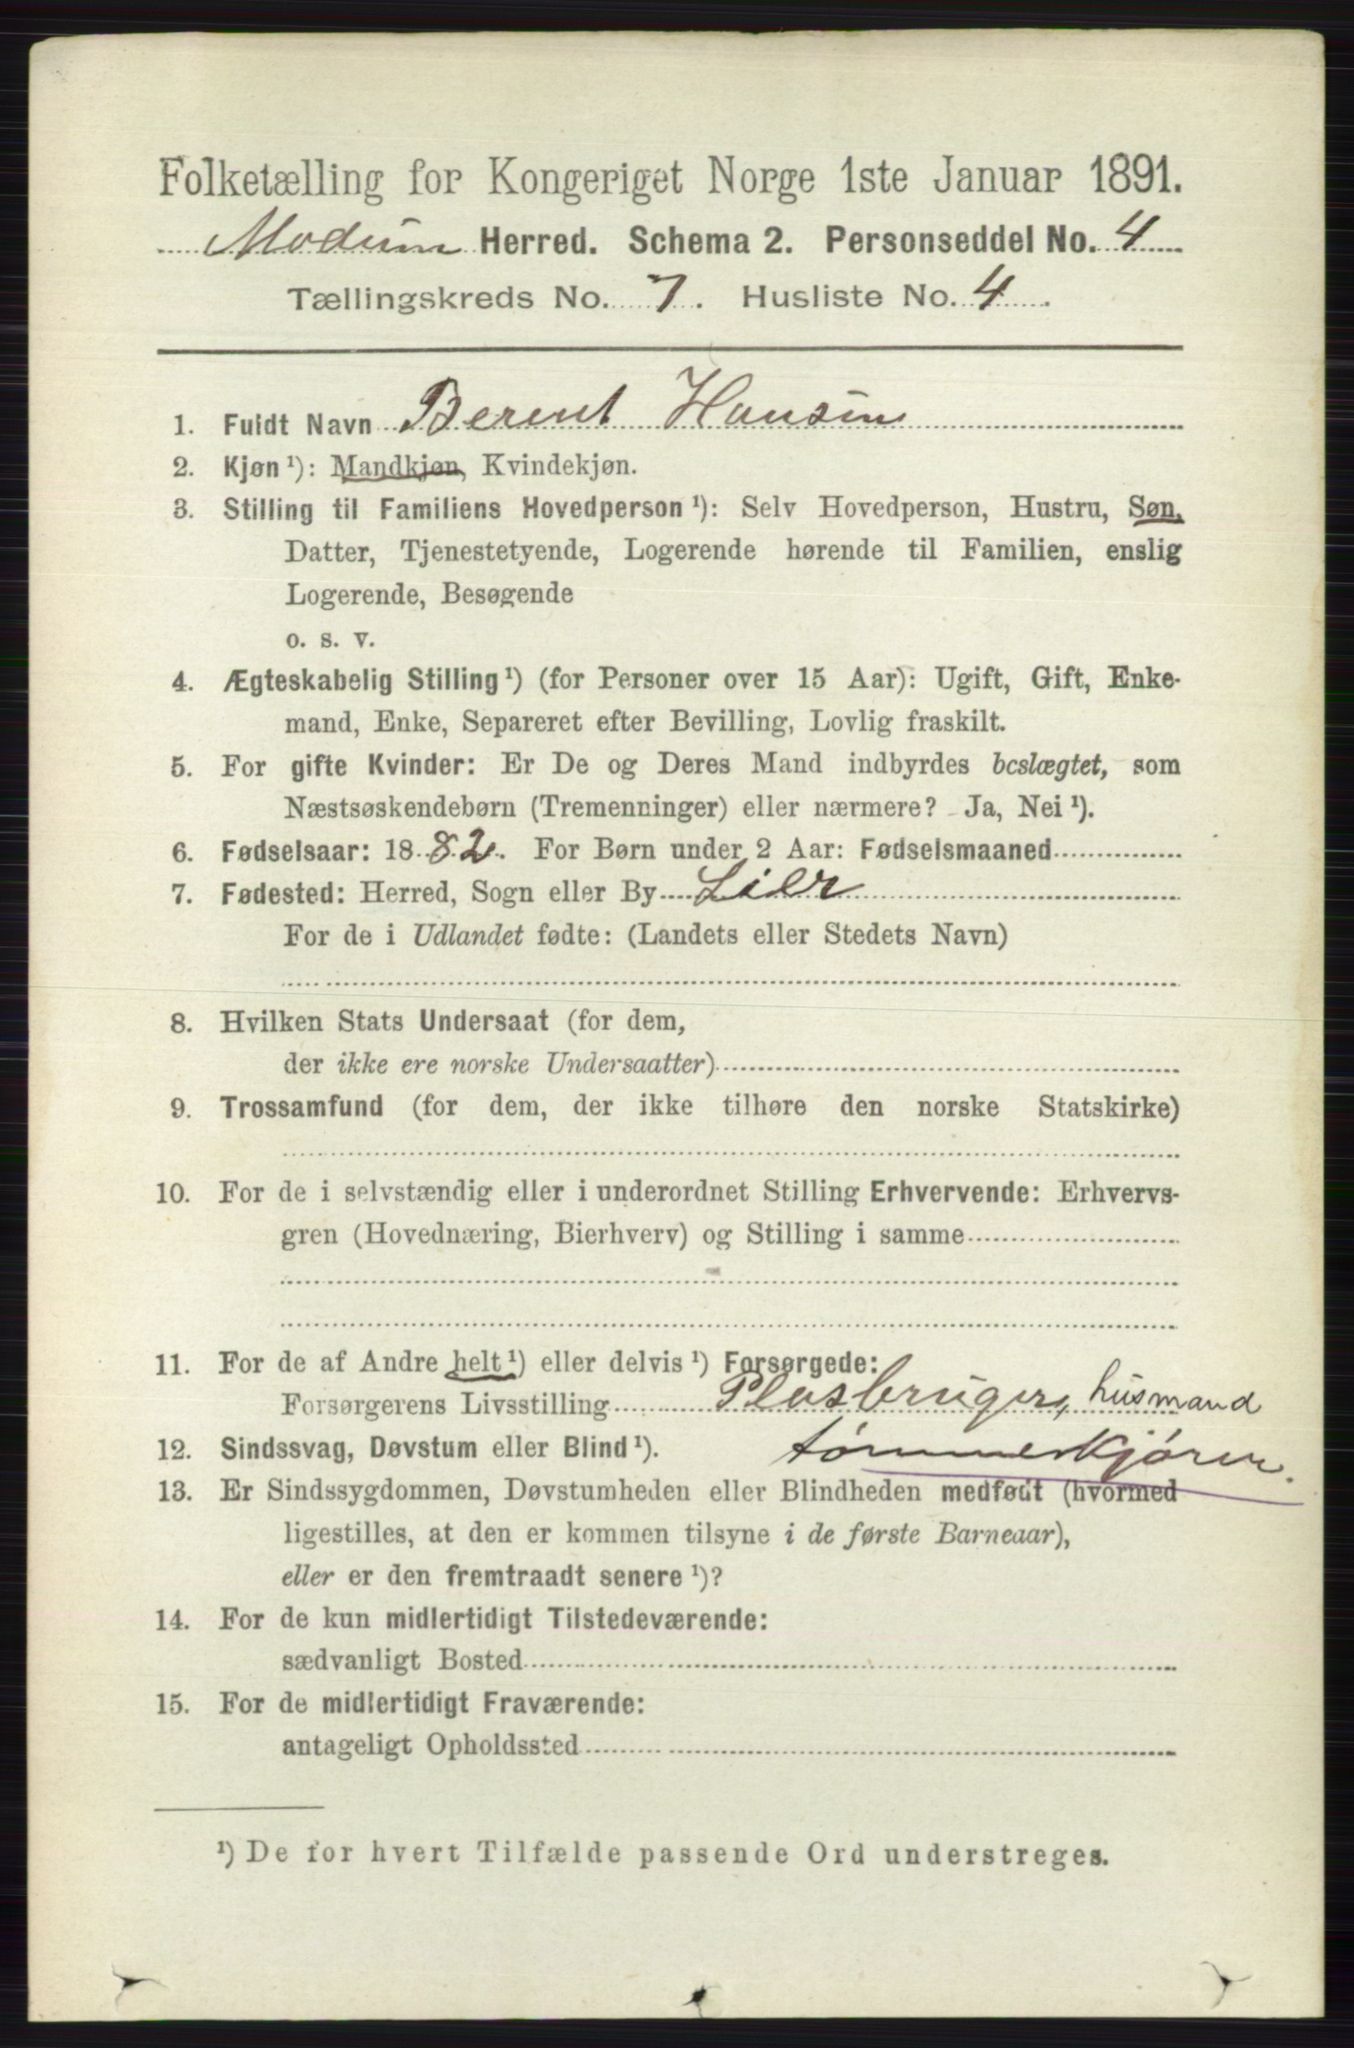 Folketælling for Kongeriget Norge 1ste Januar 1891.
Modum Herred. Schema 2. Personseddel No. 4
Tællingskreds No. 7. Husliste No. 4.
1. Fuldt Navn Berent Hansen
2. Kjøn ¹): Mandkjøn, Kvindekjøn.
3. Stilling til Familiens Hovedperson ¹): Selv Hovedperson, Hustru, Søn,
Datter, Tjenestetyende, Logerende hørende til Familien, enslig
Logerende, Besøgende
o. s. v.
4. Ægteskabelig Stilling ¹) (for Personer over 15 Aar): Ugift, Gift, Enke-
mand, Enke, Separeret efter Bevilling, Lovlig fraskilt.
5. For gifte Kvinder: Er De og Deres Mand indbyrdes beslægtet, som
Næstsøskendebørn (Tremenninger) eller nærmere? Ja, Nei ¹).
6. Fødselsaar: 1882. For Børn under 2 Aar: Fødselsmaaned
7. Fødested: Herred, Sogn eller By Lier
For de i Udlandet fødte: (Landets eller Stedets Navn)
8. Hvilken Stats Undersaat (for dem,
der ikke ere norske Undersaatter)
9. Trossamfund (for dem, der ikke tilhøre den norske Statskirke)
10. For de i selvstændig eller i underordnet Stilling Erhvervende: Erhvervs-
gren (Hovednæring, Bierhverv) og Stilling i samme
11. For de af Andre helt ¹) eller delvis ¹) Forsørgede:
Forsørgerens Livsstilling Plasbruger, husmand
12. Sindssvag, Døvstum eller Blind ¹). tømmerkjører.
13. Er Sindssygdommen, Døvstumheden eller Blindheden medfødt (hvormed
ligestilles, at den er kommen tilsyne i de første Barneaar),
eller er den fremtraadt senere ¹)?
14. For de kun midlertidigt Tilstedeværende:
sædvanligt Bosted
15. For de midlertidigt Fraværende:
antageligt Opholdssted
¹) De for hvert Tilfælde passende Ord understreges.